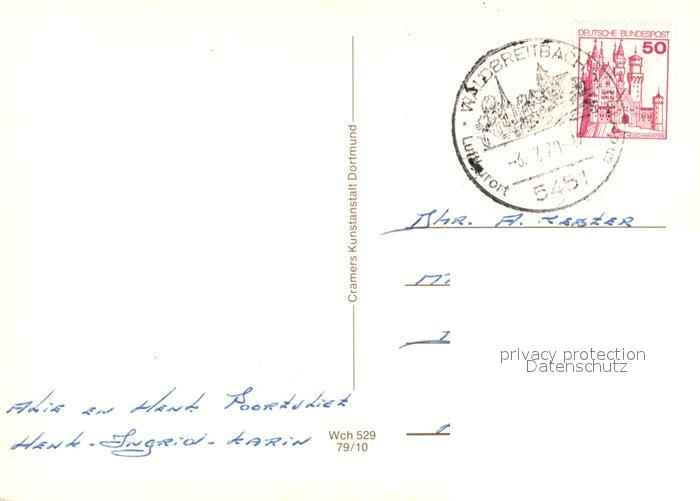 DEUTSCHE BUNDESPOST
50
WALDBREITBACH
-3.7.79
5451
Luftkurort
Cramers Kunstanstalt Dortmund
A.
privacy protection
Datenschutz
Alie en Henk Poortvliet
Henk-Ingrid-Karin
Wch 529
79/10